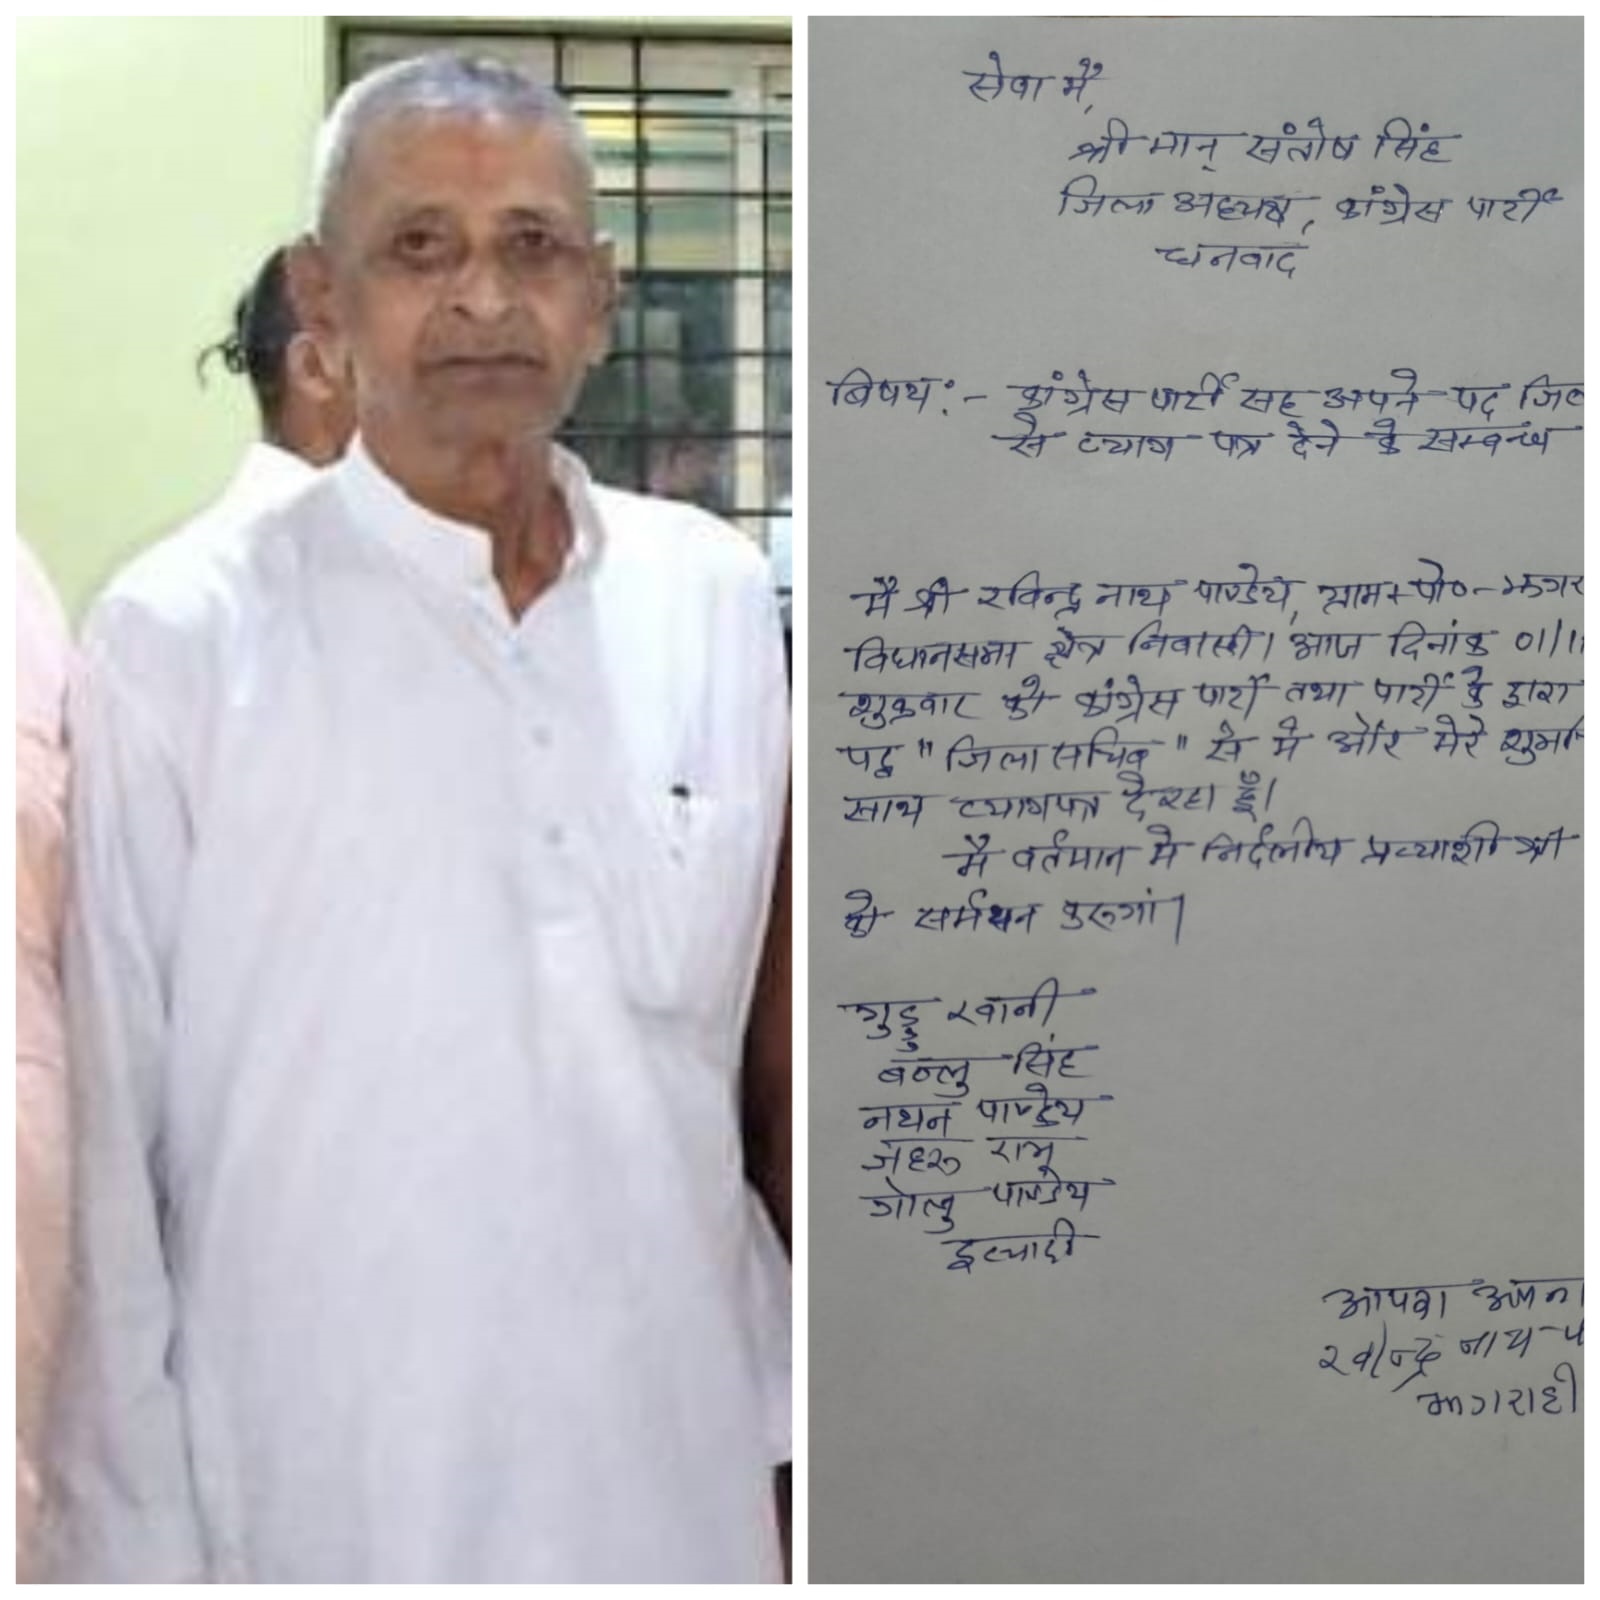 सेवा में,
श्रीमान् संतोष सिंह
जिला अध्यक्ष, कांग्रेस पार्टी
धनबाद
बिषय:- कांग्रेस पार्टी सह अपने पद जिल
से त्याग पत्र देने के सम्बन्ध
मै श्री रविन्द्र नाथ पाण्डेय, ग्राम+पो०-मगर
विधानसभा क्षेत्र निवासी। आज दिनांक 01/11
शुक्रवार को कांग्रेस पार्टी तथा पार्टी के द्वारा
पद "जिला सचिव" से मै और मेरे शुभ
साथ त्यागपत्र दे रहा हूँ।
मै वर्तमान मे निर्दलीय प्रत्याशी श्री
को सर्मथन करूगां।
गुड्डु रवानी
बब्लु सिंह
नयन पाण्डेय
जहरु रामू
गोलु पाण्डेय
इत्यादी
आपका अपना
रवीन्द्र नाथ प
मगराही